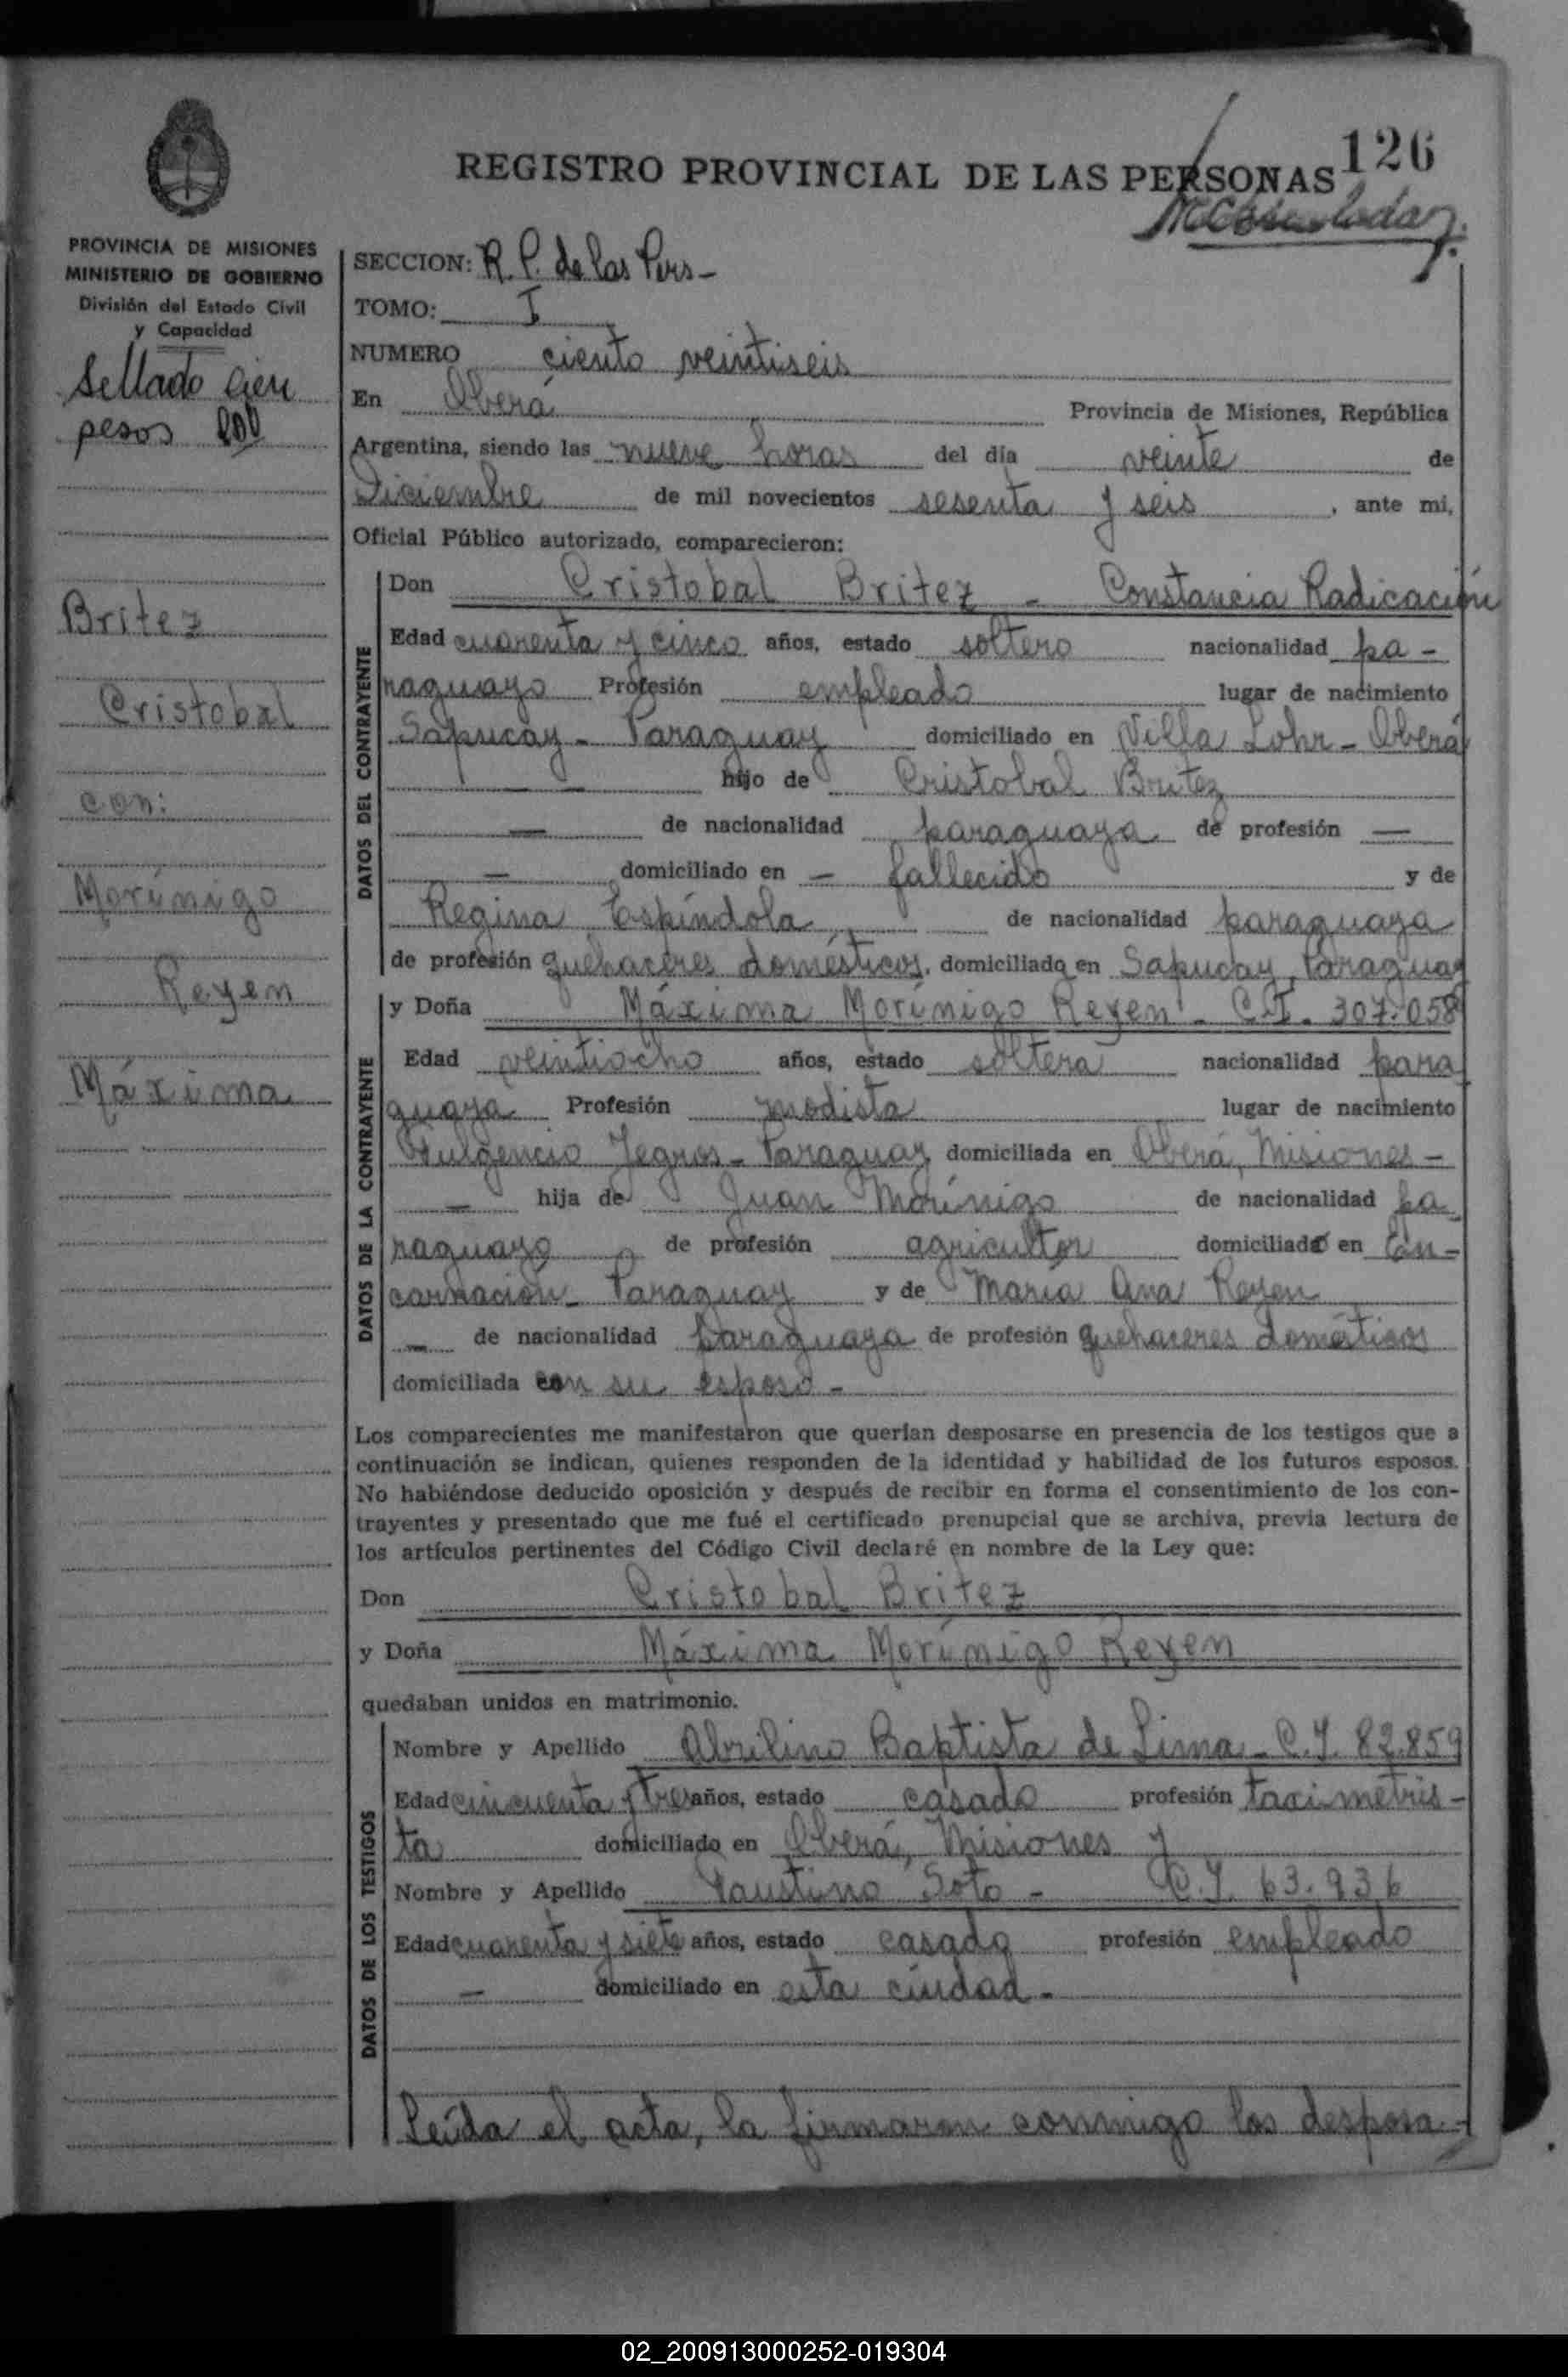 126
REGISTRO PROVINCIAL DE LAS PERSONAS
PROVINCIA DE MISIONES
MINISTERIO DE GOBIERNO
División del Estado Civil
y Capacidad
Sellado cien
pesos 100
Britez
Cristobal
con:
Morínigo
Reyen
Máxima
SECCION: R. P. de las Pers-
TOMO: I
NUMERO ciento veintiseis
En Oberá Provincia de Misiones, República
Argentina, siendo las nueve horas del día veinte de
Diciembre de mil novecientos sesenta y seis, ante mi,
Oficial Público autorizado, comparecieron:
DATOS DEL CONTRAYENTE
Don Cristobal Britez - Constancia Radicación
Edad cuarenta y cinco años, estado soltero nacionalidad pa-
raguayo Profesión empleado lugar de nacimiento
Sapucay - Paraguay domiciliado en Villa Lohr - Oberá
— — hijo de Cristobal Britez
— de nacionalidad paraguaya de profesión —
— domiciliado en — fallecido y de
Regina Espíndola de nacionalidad paraguaya
de profesión quehaceres domésticos, domiciliada en Sapucay, Paraguay
DATOS DE LA CONTRAYENTE
y Doña Máxima Morínigo Reyen - C.I. 307.058
Edad veintiocho años, estado soltera nacionalidad para
guaya Profesión modista lugar de nacimiento
Fulgencio Yegros - Paraguay domiciliada en Oberá, Misiones -
— hija de Juan Morínigo de nacionalidad pa
raguayo de profesión agricultor domiciliado en En-
carnación - Paraguay y de María Ana Reyen
— de nacionalidad paraguaya de profesión quehaceres domésticos
domiciliada con su esposo -
Los comparecientes me manifestaron que querían desposarse en presencia de los testigos que a
continuación se indican, quienes responden de la identidad y habilidad de los futuros esposos.
No habiéndose deducido oposición y después de recibir en forma el consentimiento de los con-
trayentes y presentado que me fué el certificado prenupcial que se archiva, previa lectura de
los artículos pertinentes del Código Civil declaré en nombre de la Ley que:
Don Cristobal Britez
y Doña Máxima Morínigo Reyen
quedaban unidos en matrimonio.
DATOS DE LOS TESTIGOS
Nombre y Apellido Abrilino Baptista de Lima - C.I. 82.859
Edad cincuenta y tres años, estado casado profesión taximetris-
ta domiciliado en Oberá, Misiones y
Nombre y Apellido Faustino Soto - C.I. 63.936
Edad cuarenta y siete años, estado casado profesión empleado
— domiciliado en esta ciudad.
Leída el acta, la firmaron conmigo los desposa-
02_200913000252-019304